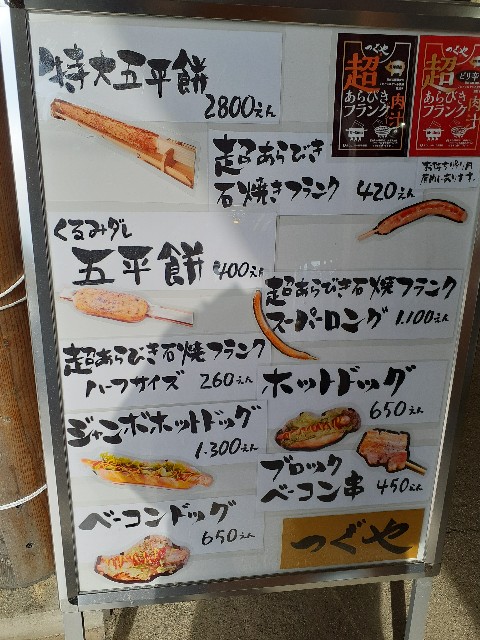 特大五平餅
2800えん
つぐや
超
あらびき
フランク
肉汁
つぐや
超
ピリ辛
あらびき
フランク
肉汁
お持ち帰り用
店内にあります。
超あらびき
石焼きフランク 420えん
くるみダレ
五平餅 400えん
超あらびき石焼フランク
スーパーロング 1.100えん
超あらびき石焼フランク
ハーフサイズ 260えん
ホットドッグ
650えん
ジャンボホットドッグ
1.300えん
ブロック
ベーコン串 450えん
ベーコンドッグ
650えん
つぐや